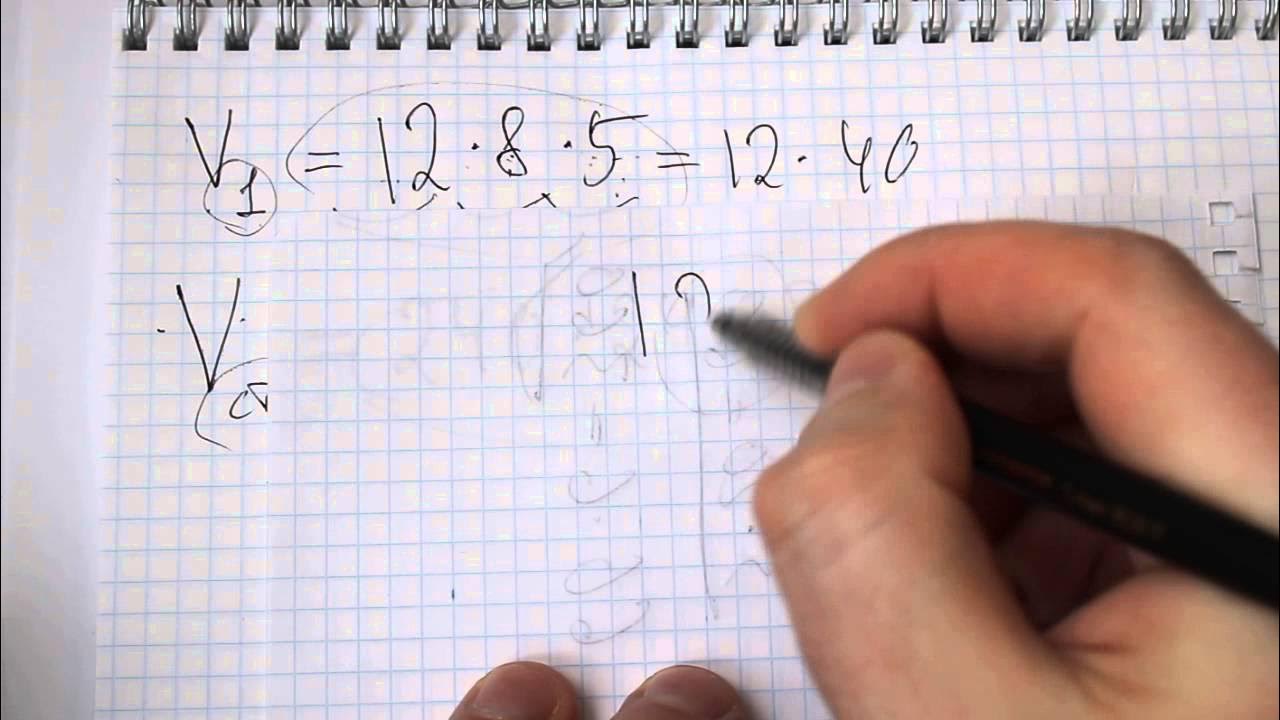 V₁ = 12 · 8 · 5 = 12 · 40
V 12